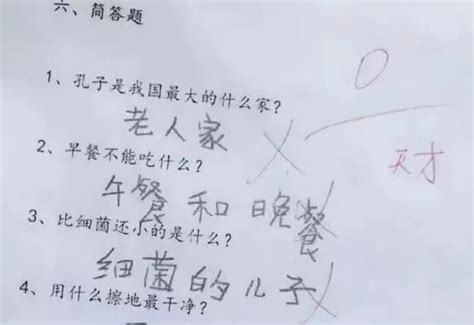 六、简答题
0
1、孔子是我国最大的什么家?
老人家
天才
2、早餐不能吃什么?
午餐和晚餐
3、比细菌还小的是什么?
细菌的儿子
4、用什么擦地最干净?